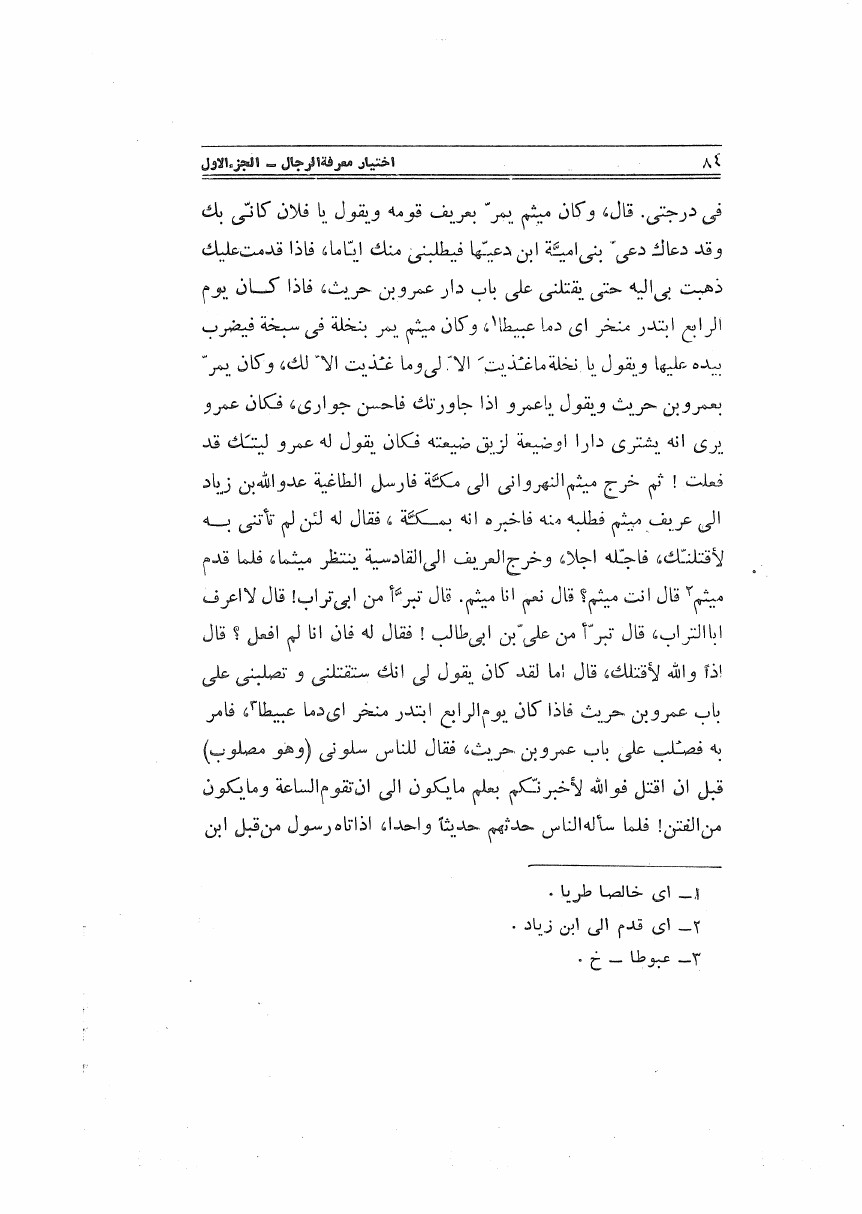 ٨٤ اختيار معرفةالرجال ــ الجزءالاول
فى درجتى. قال، وكان ميثم يمرّ بعريف قومه ويقول يا فلان كانّى بك
وقد دعاك دعىّ بنى‌اميّة ابن دعيّها فيطلبنى منك ايّاما، فاذا قدمت‌عليك
ذهبت بى‌اليه حتى يقتلنى على باب دار عمروبن حريث، فاذا كــان يوم
الرابع ابتدر منخر اى دما عبيطا١، وكان ميثم يمر بنخلة فى سبخة فيضرب
بيده عليها ويقول يا نخلة ماغذيت الاّ لى وما غذيت الاّ لك، وكان يمرّ
بعمروبن حريث ويقول ياعمرو اذا جاورتك فاحسن جوارى، فكان عمرو
يرى انه يشترى دارا اوضيعة لزيق ضيعته فكان يقول له عمرو ليتك قد
فعلت ! ثم خرج ميثم‌النهروانى الى مكّة فارسل الطاغية عدوالله‌بن زياد
الى عريف ميثم فطلبه منه فاخبره انه بمــكّة ، فقال له لئن لم تأتنى بــه
لأقتلنّك، فاجّله اجلا، وخرج‌العريف الى‌القادسية ينتظر ميثما، فلما قدم
ميثم٢ قال انت ميثم؟ قال نعم انا ميثم. قال تبرّأ من ابى‌تراب! قال لااعرف
اباالتراب، قال تبرّأ من علىّ‌بن ابى‌طالب ! فقال له فان انا لم افعل ؟ قال
اذاً والله لأقتلك، قال اما لقد كان يقول لى انك ستقتلنى و تصلبنى على
باب عمروبن حريث فاذا كان يوم‌الرابع ابتدر منخر اى‌دما عبيطا٣، فامر
به فصُلب على باب عمروبن حريث، فقال للناس سلونى (وهو مصلوب)
قبل ان اقتل فوالله لأخبرنّكم بعلم مايكون الى ان‌تقوم‌الساعة ومايكون
من‌الفتن! فلما سأله‌الناس حدثهم حديثاً واحدا، اذاتاه رسول من‌قبل ابن
١ــ اى خالصا طريا .
٢ــ اى قدم الى ابن زياد .
٣ــ عبوطا ــ خ .